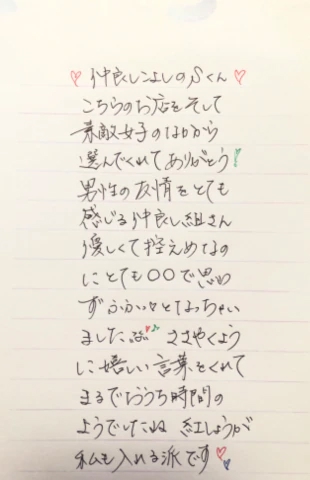 ♥仲良しこよしのSくん♡
こちらのお店をそして
素敵女子のなかから
選んでくれてありがとう!
男性の友情をとても
感じる仲良し組さん
優しくて控えめなの
にとても〇〇で思わ
ずふかっとなっちゃい
ました♥ ささやくよう
に嬉しい言葉をくれて
まるでおうち時間の
ようでしたね 紅しょうが
私も入れる派です♥